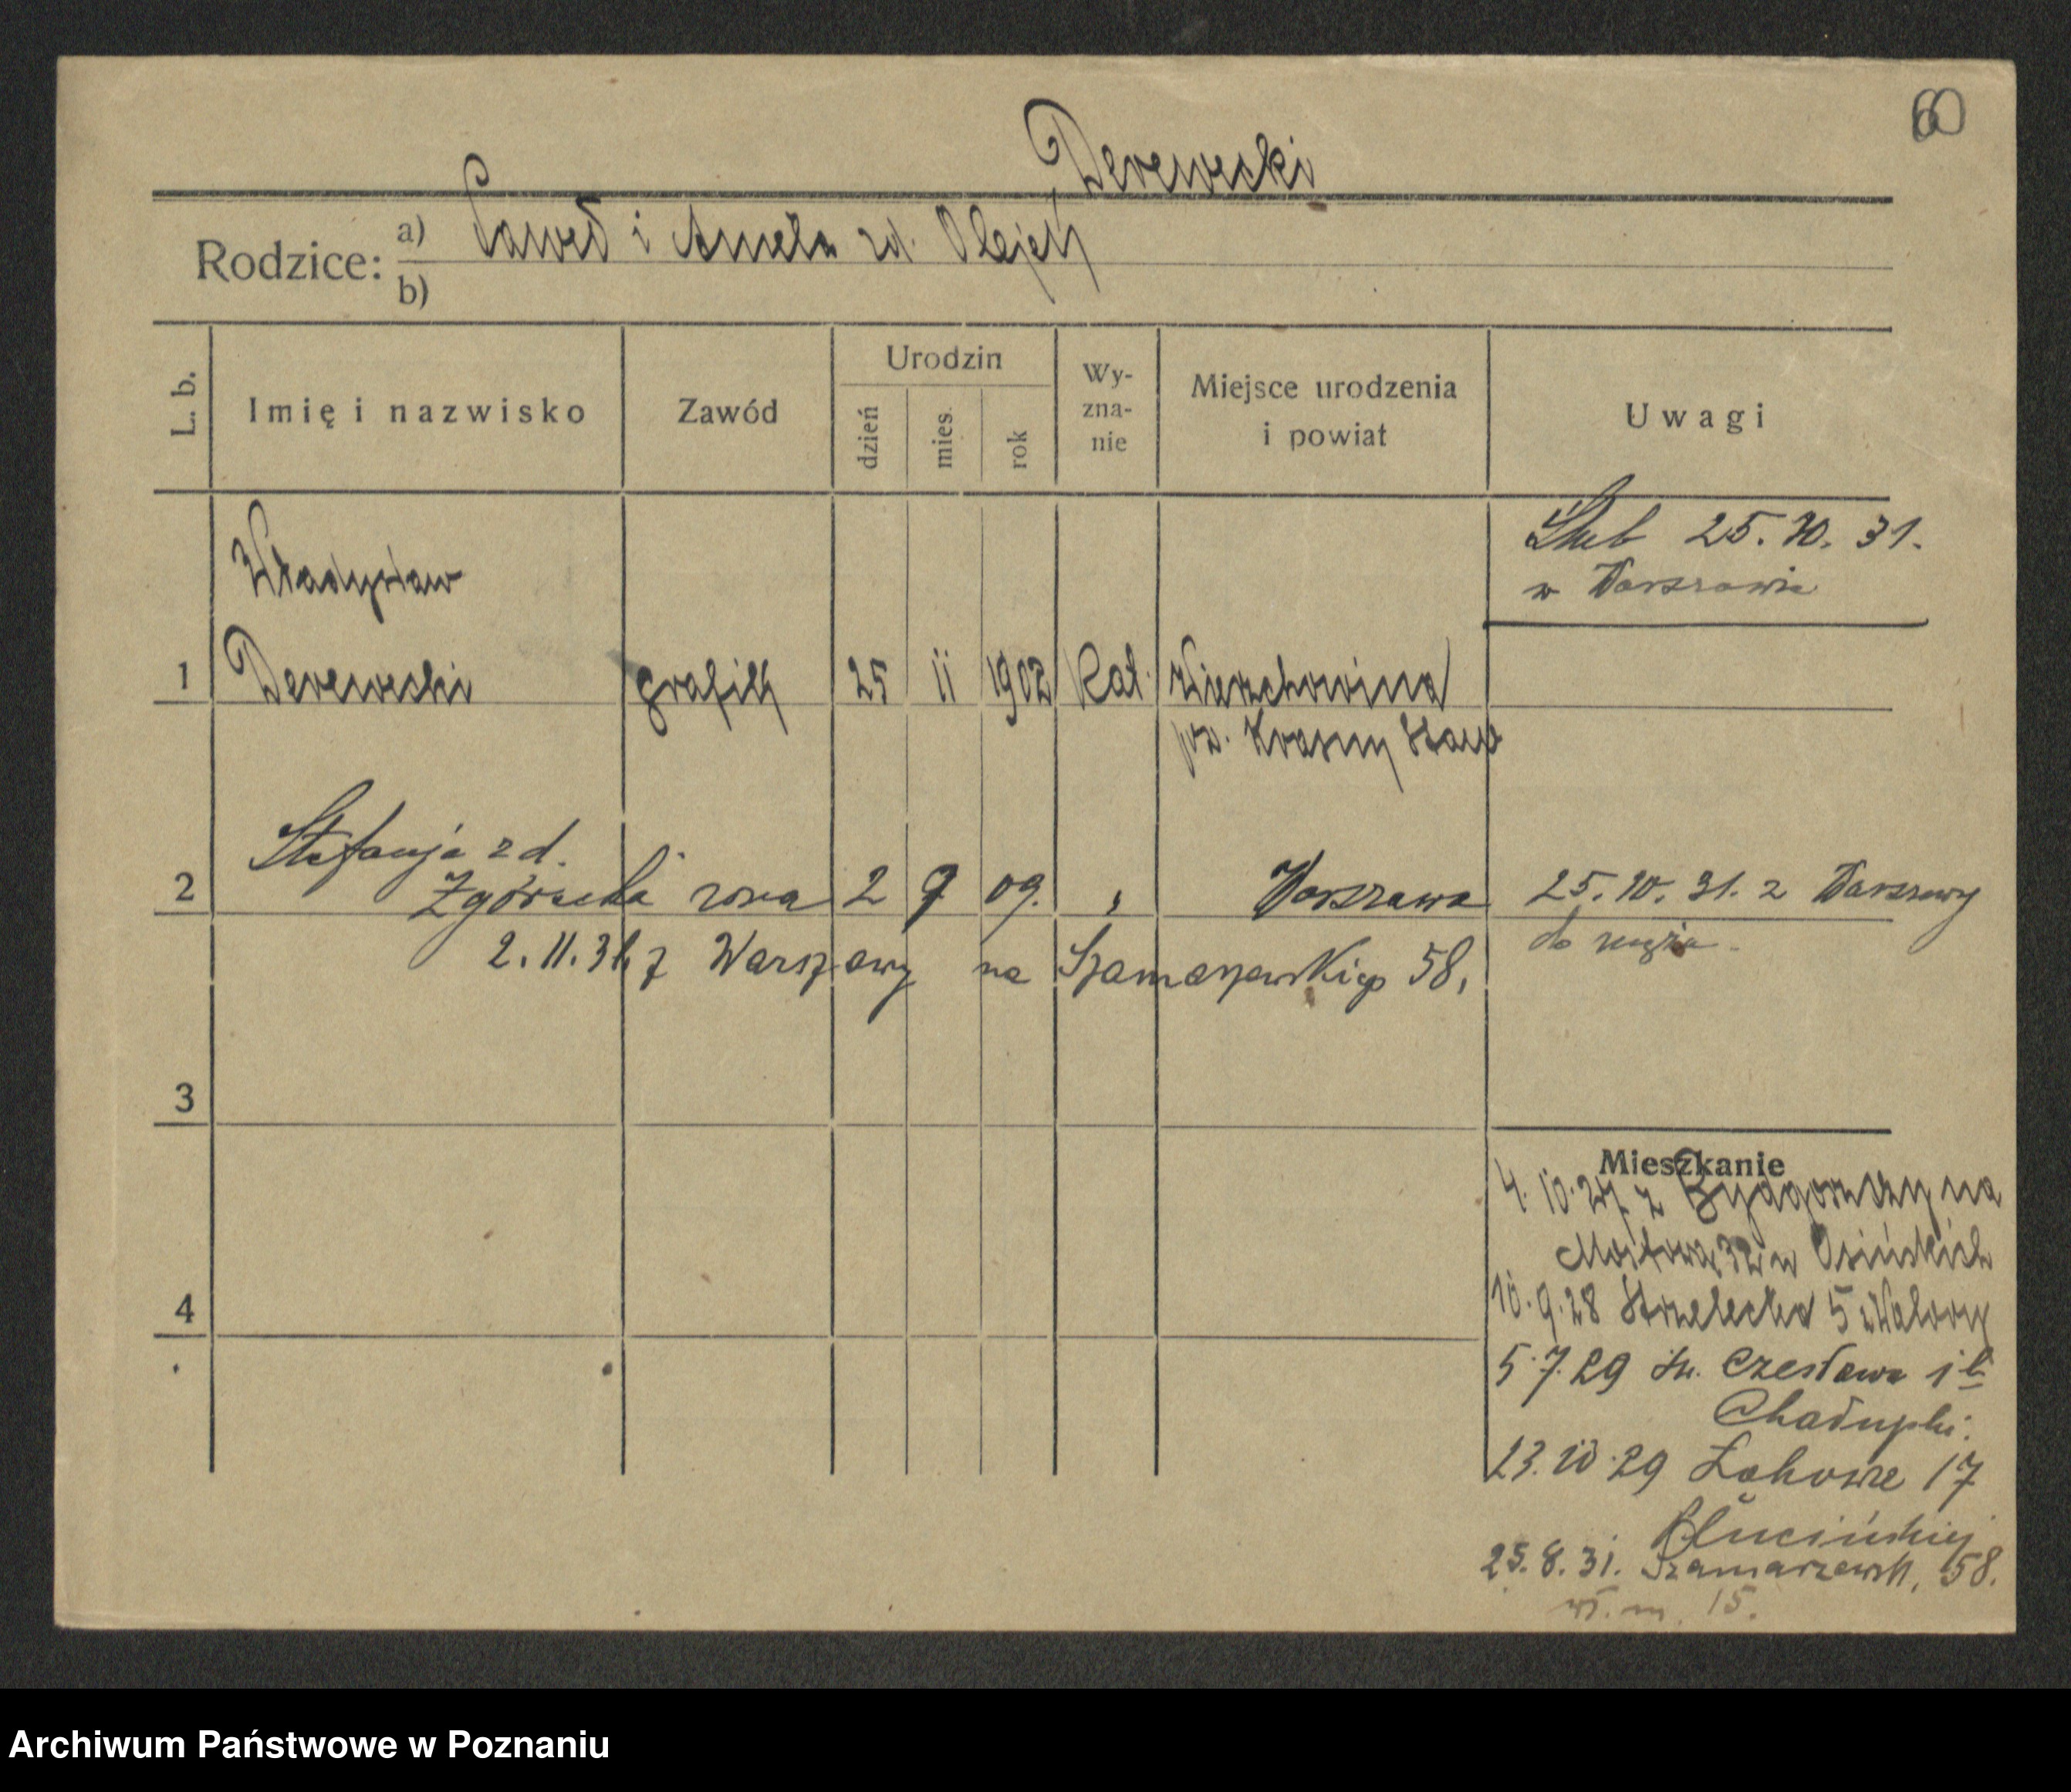 60
Derewecki
Rodzice: a) Paweł i Amelia zd. Olejek
b)
L. b.
Imię i nazwisko
Zawód
Urodzin
dzień
mies.
rok
Wy-
zna-
nie
Miejsce urodzenia
i powiat
Uwagi
Ślub 25.10.31.
w Warszawie
Władysław
1 Derewecki grafik 25 11 1902 Kat. Wierzchowina
pow. Krasny Staw
Stefanja zd.
2 Zgórzecka żona 2 9 09. „ Warszawa 25.10.31. z Warszawy
do męża.
2.11.31 z Warszawy na Szamarzewskiego 58,
3
4
Mieszkanie
4.10.27 z Bydgoszczy na
Mostowa 32 u Osińskich
10.9.28 Strzelecka 5
5.7.29 Św. Czesława 1b
Chałupki.
23.10.29 Łąkowe 17
25.8.31. Szamarzewsk. 58.
m. 15.
Archiwum Państwowe w Poznaniu